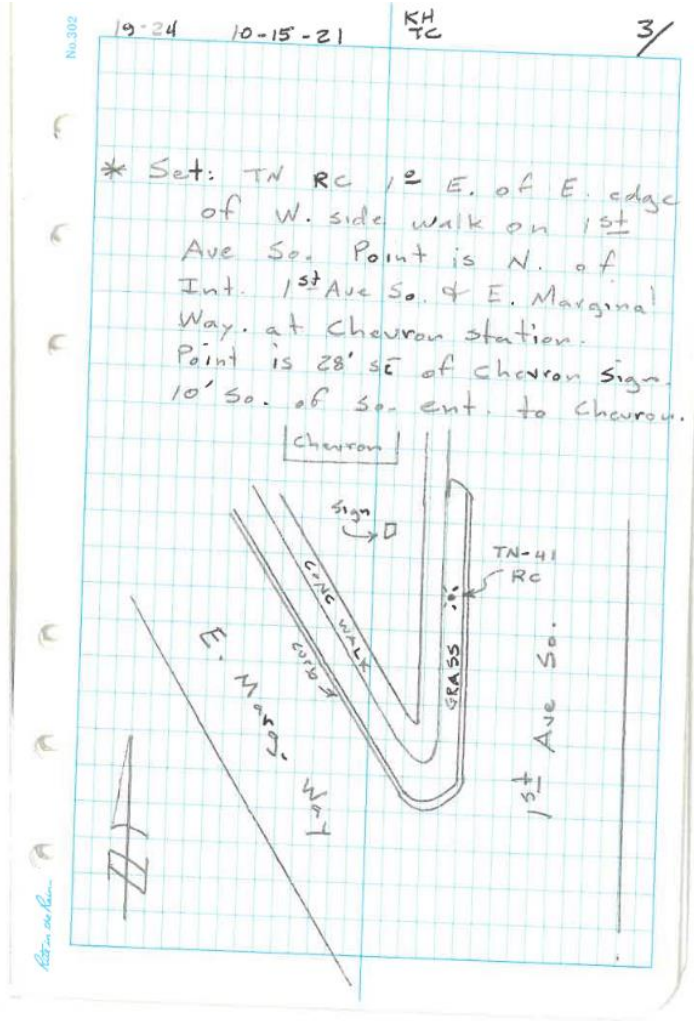 No.302
19-24 10-15-21 KH TC 3/
* Set: TN RC 1º E. of E. edge
of W. side walk on 1st
Ave So. Point is N. of
Int. 1st Ave So. & E. Marginal
Way. at Chevron station.
Point is 28' SE of Chevron Sign.
10' So. of so. ent. to Chevron.
Chevron
Sign
TN-41
RC
CONC WALK
CURB
GRASS
E. Marg. Way
1st Ave So.
N
Rite in the Rain